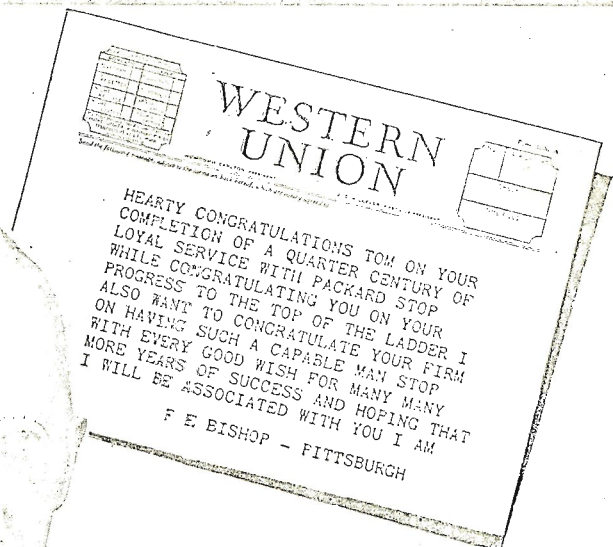 WESTERN
UNION
HEARTY CONGRATULATIONS TOM ON YOUR
COMPLETION OF A QUARTER CENTURY OF
LOYAL SERVICE WITH PACKARD STOP
WHILE CONGRATULATING YOU ON YOUR
PROGRESS TO THE TOP OF THE LADDER I
ALSO WANT TO CONGRATULATE YOUR FIRM
ON HAVING SUCH A CAPABLE MAN STOP
WITH EVERY GOOD WISH FOR MANY MANY
MORE YEARS OF SUCCESS AND HOPING THAT
I WILL BE ASSOCIATED WITH YOU I AM
F E BISHOP - PITTSBURGH